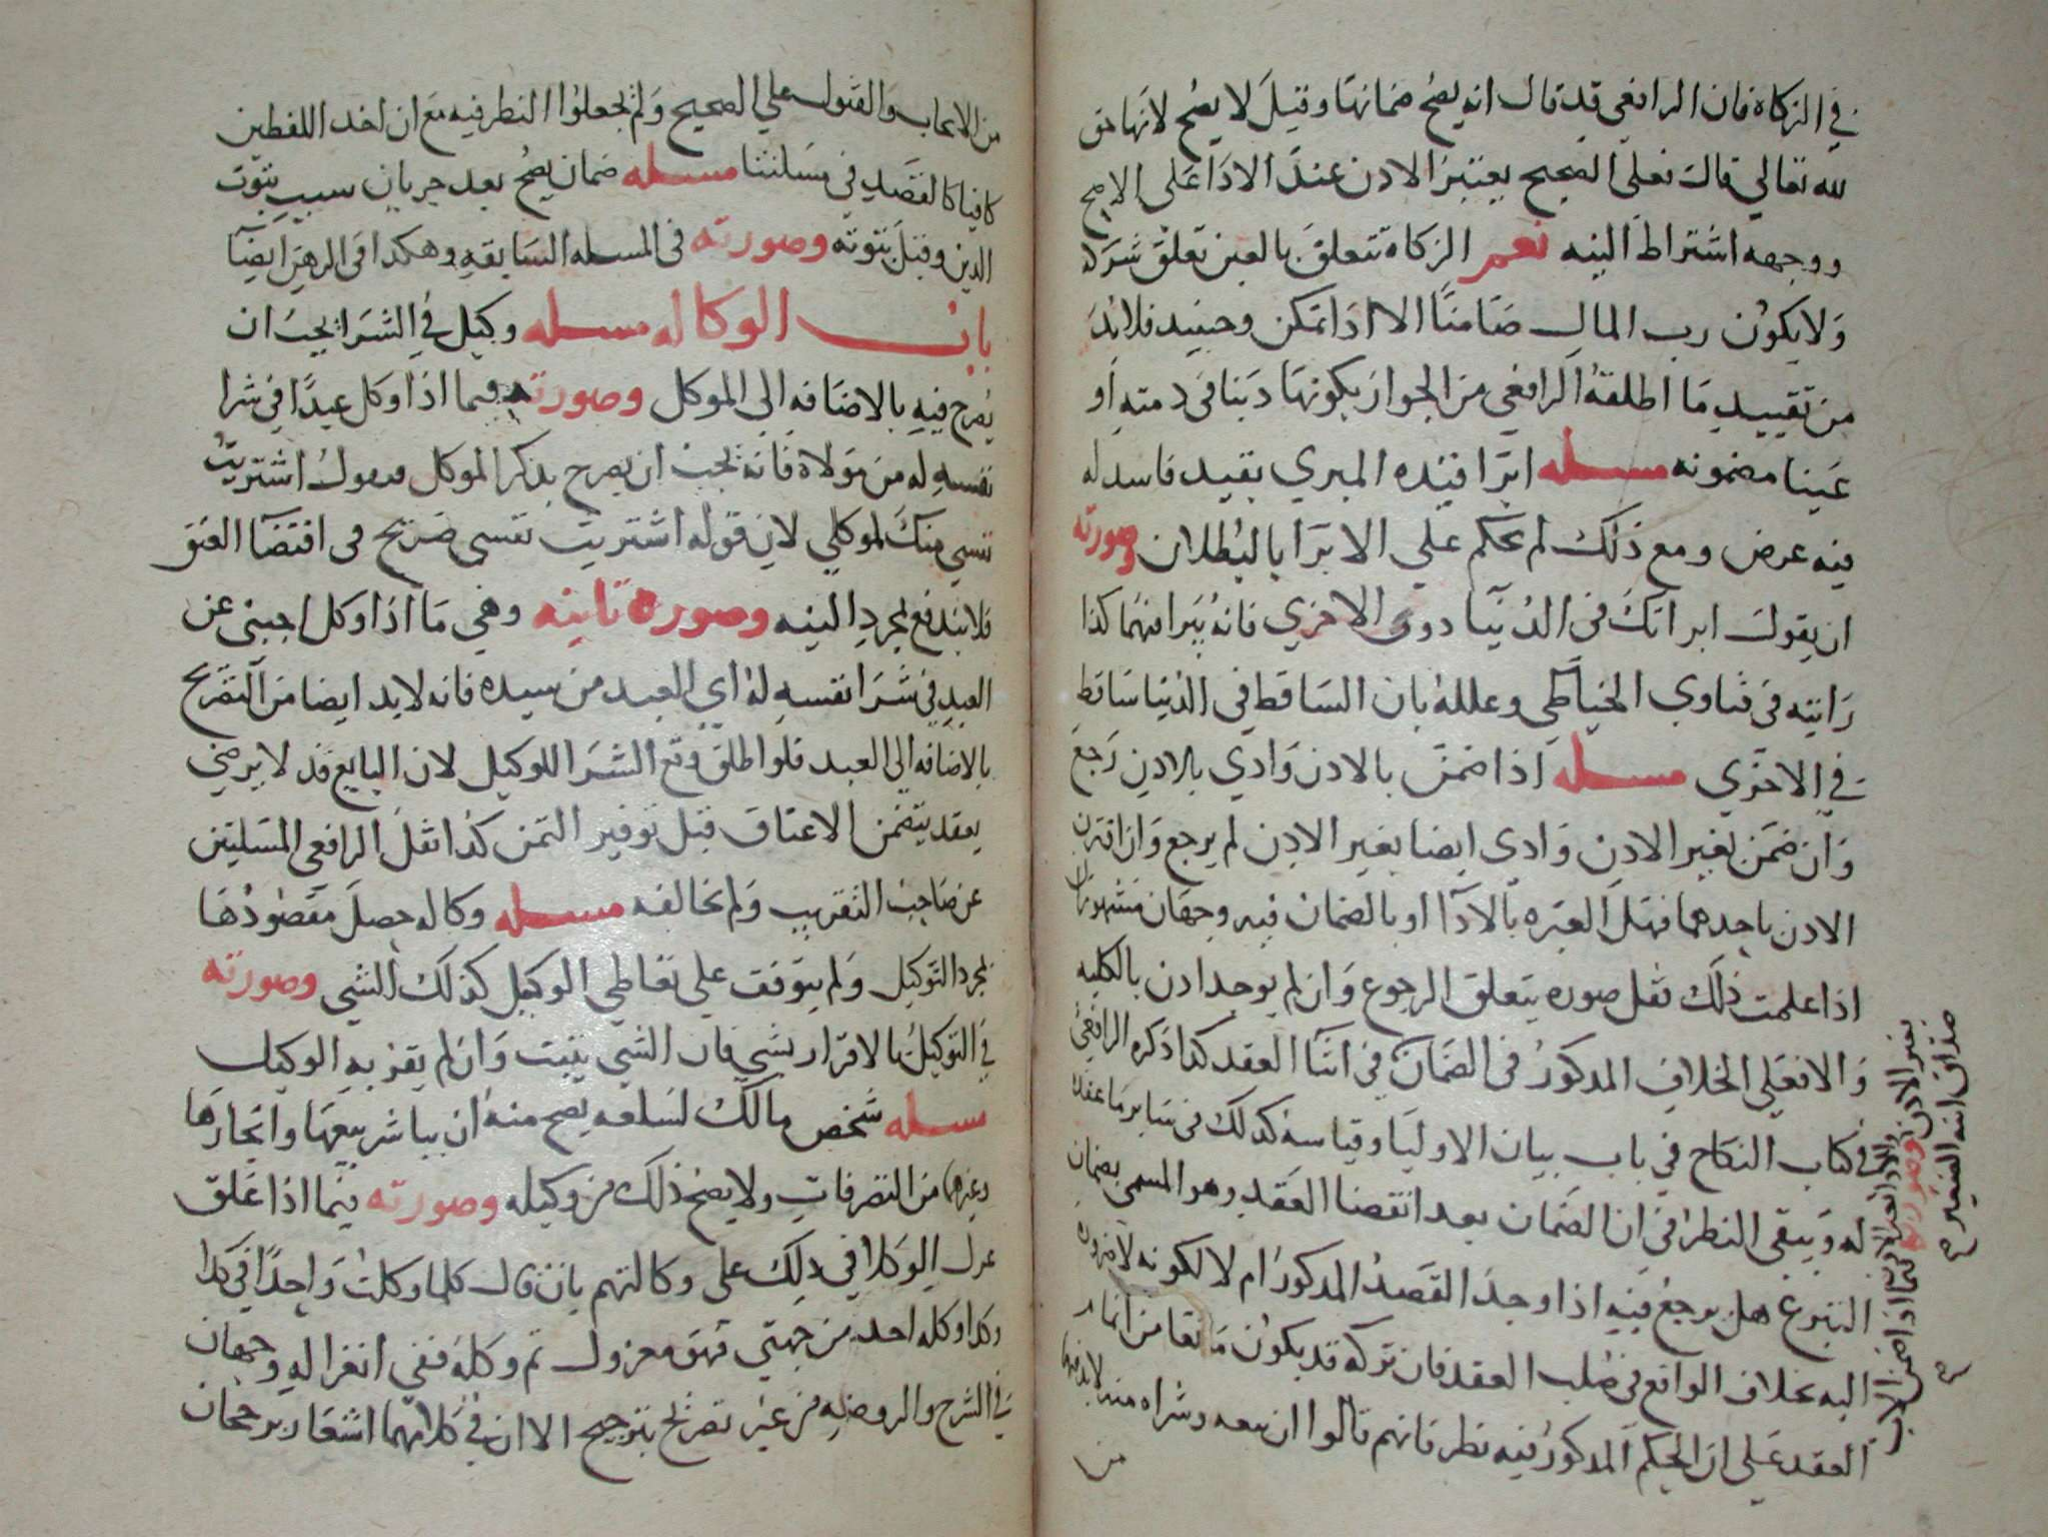 في الزكاة فان الرافعي قد قال انه يصح ضمانها وقيل لا يصح لانها حق
لله تعالي قال فعلى الصحيح يعتبر الاذن عند الاداء على الاصح
ووجهه اشتراط النيه نعم الزكاة تتعلق بالعين تعلق شركة
ولا يكون رب المال ضامنا الا اذا تمكن وحينيد فلابد
من تقييد ما اطلقه الرافعي من الجواز بكونها دينا في ذمته او
عينا مضمونه مسله ابرا قيده المبري بقيد فاسد له
فيه غرض ومع ذلك لم يحكم علي الابرا بالبطلان وصورته
ان يقول ابراتك في الدنيا دون الاخري فانه يبرا فيهما كذا
رايته في فتاوي الحناطي وعلله بان الساقط في الدنيا ساقط
في الاخري مسله اذا ضمن بالاذن وادي بالاذن رجع
وان ضمن بغير الاذن وادي ايضا بغير الاذن لم يرجع وان اقترن
الاذن باحدهما فهل العبره بالادا او بالضمان فيه وجهان مشهوران
اذا علمت ذلك فقل صوره يتعلق الرجوع وان لم يوجد اذن بالكليه
والافعلي الخلاف المذكور في الضمان في اثنا العقد كذا ذكره الرافعي
في كتاب النكاح في باب بيان الاوليا وقياسه كذلك في سايرما عقد
له ويبقى النظر في ان الضمان بعد انقضا العقد وهو المسمى بضمان
التبرع هل يرجع فيه اذا وجد القصد المذكور ام لا لكونه لا ضرورة
اليه بخلاف الواقع في صلب العقد فان تركه قد يكون مانعا من اتمام
العقد على ان الحكم المذكور فيه نظر فانهم قالوا ان بيعه وشراه منه لابد فيهما
من
بغير الاذن وصورته فيما اذا ضمن الاب
صداق ابنه الفقير
من الايجاب والقبول علي الصحيح ولم يجعلوا النظر فيه مع ان احد اللفظين
كافيا كالقصد في مسلتنا مسله ضمان يصح بعد جريان سبب ثبوت
الدين وقبل ثبوته وصورته في المسله السابقه وهكذا في الرهن ايضا
باب الوكاله مسله وكيل في الشرا يجب ان
يصرح فيه بالاضافه الي الموكل وصورته فيما اذا وكل عبدا في شرا
نفسه له من مولاه فانه يجب ان يصرح بذكر الموكل فيقول اشتريت
نفسي منك لموكلي لان قوله اشتريت نفسي صريح في اقتضا العتق
فلا يندفع بمجرد النيه وصورة ثانيه وهي ما اذا وكل اجنبي عن
العبد في شرا نفسه له اي للعبد من سيده فانه لابد ايضا من التصريح
بالاضافه الي العبد فلو اطلق وقع الشرا للوكيل لان البايع قد لا يرضي
بعقد يتضمن الاعتاق قبل توفير الثمن كذا نقل الرافعي المسلتين
عن صاحب التقريب ولم يخالفه مسله وكاله حصل مقصودها
بمجرد التوكيل ولم يتوقف علي تعاطي الوكيل كذلك الشي وصورته
في التوكيل بالاقرار بشي فان الشي يثبت وان لم يقر به الوكيل
مسله شخص مالك لسلعه يصح منه ان يباشر بيعها وايجارها
وغيرهما من التصرفات ولا يصح ذلك من وكيله وصورته فيما اذا علق
عزل الوكلا في ذلك على وكالتهم بان قال كلما وكلت واحدا في كذا
وكذا وكله احد من جهتي فهو معزول ثم وكله ففي انعزاله وجهان
في الشرح والروضه من غير تصريح بترجيح الا ان في كلامهما اشعار برجحان